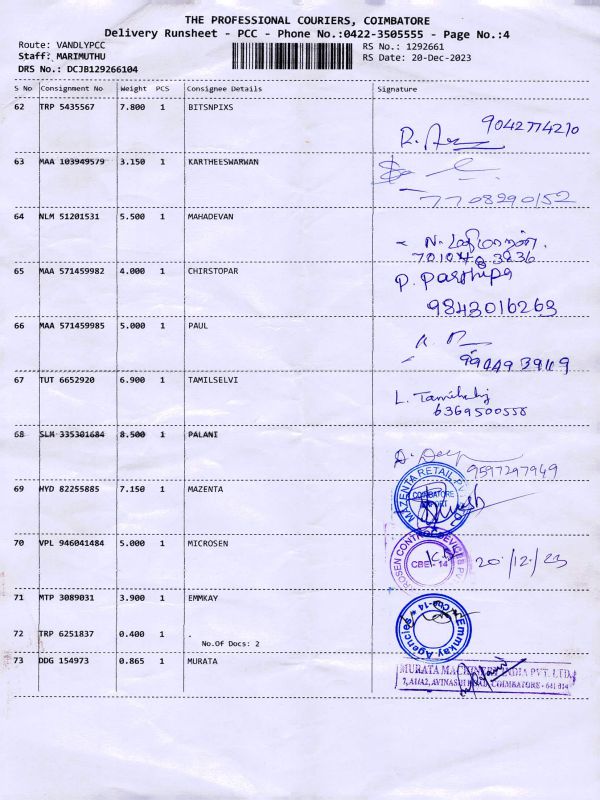 THE PROFESSIONAL COURIERS, COIMBATORE
Delivery Runsheet - PCC - Phone No.:0422-3505555 - Page No.:4
Route: VANDLYPCC RS No.: 1292661
Staff: MARIMUTHU RS Date: 20-Dec-2023
DRS No.: DCJB129266104
S No Consignment No Weight PCS Consignee Details Signature
62 TRP 5435567 7.800 1 BITSNPIXS
9042774210
63 MAA 103949579 3.150 1 KARTHEESWARWAN
7708290152
64 NLM 51201531 5.500 1 MAHADEVAN
N.
65 MAA 571459982 4.000 1 CHIRSTOPAR
P. Parthipa
9843016263
66 MAA 571459985 5.000 1 PAUL
67 TUT 6652920 6.900 1 TAMILSELVI
L.
6369500558
68 SLM 335301684 8.500 1 PALANI
9597297949
69 HYD 82255885 7.150 1 MAZENTA
MAZENTA RETAIL
COIMBATORE
70 VPL 946041484 5.000 1 MICROSEN
ROSEN CONTROL DEVICES
CBE-14
20/12/23
71 MTP 3089031 3.900 1 EMMKAY
Emmkay Agencies
Cbe-14
72 TRP 6251837 0.400 1 .
No.Of Docs: 2
73 DDG 154973 0.865 1 MURATA
MURATA MACHINERY INDIA PVT. LTD.
7, A1/A2, AVINASHI ROAD, COIMBATORE - 641 014